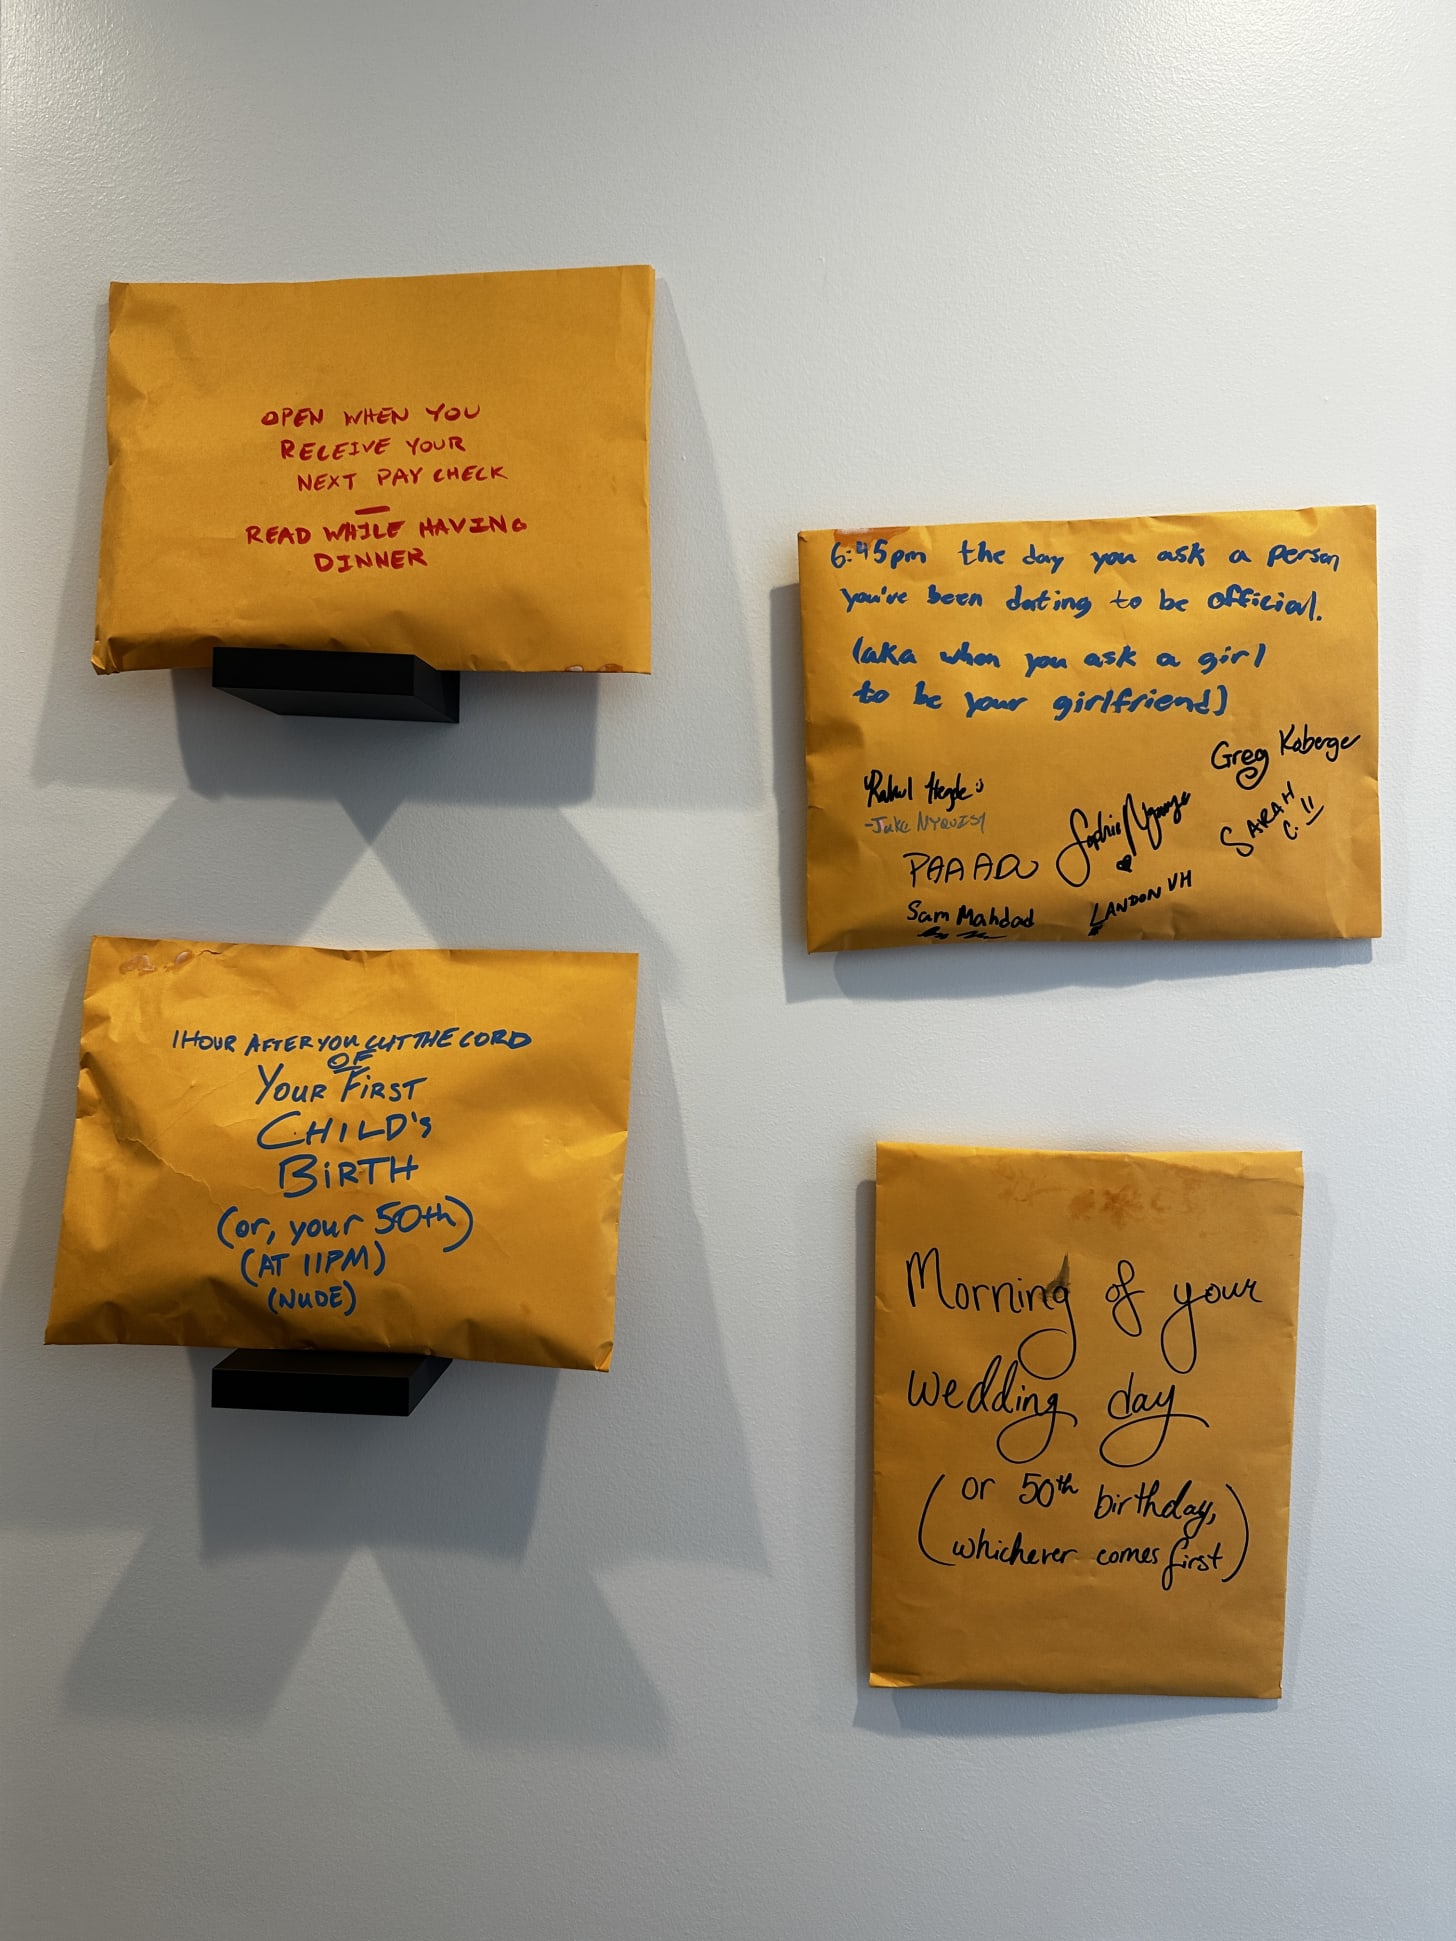 OPEN WHEN YOU
RECEIVE YOUR
NEXT PAY CHECK
—
READ WHILE HAVING
DINNER
6:45pm the day you ask a person
you've been dating to be official.
(aka when you ask a girl
to be your girlfriend)
Greg Koberge
Rahul Hegde :)
-Jake NYQUIST
SARAH
C. !!
PAAADU
Sam Mahdad
LANDON VH
1 HOUR AFTER YOU CUT THE CORD
OF
YOUR FIRST
CHILD'S
BIRTH
(or, your 50th)
(AT 11PM)
(NUDE)
Morning of your
wedding day
(or 50th birthday,
whichever comes first)